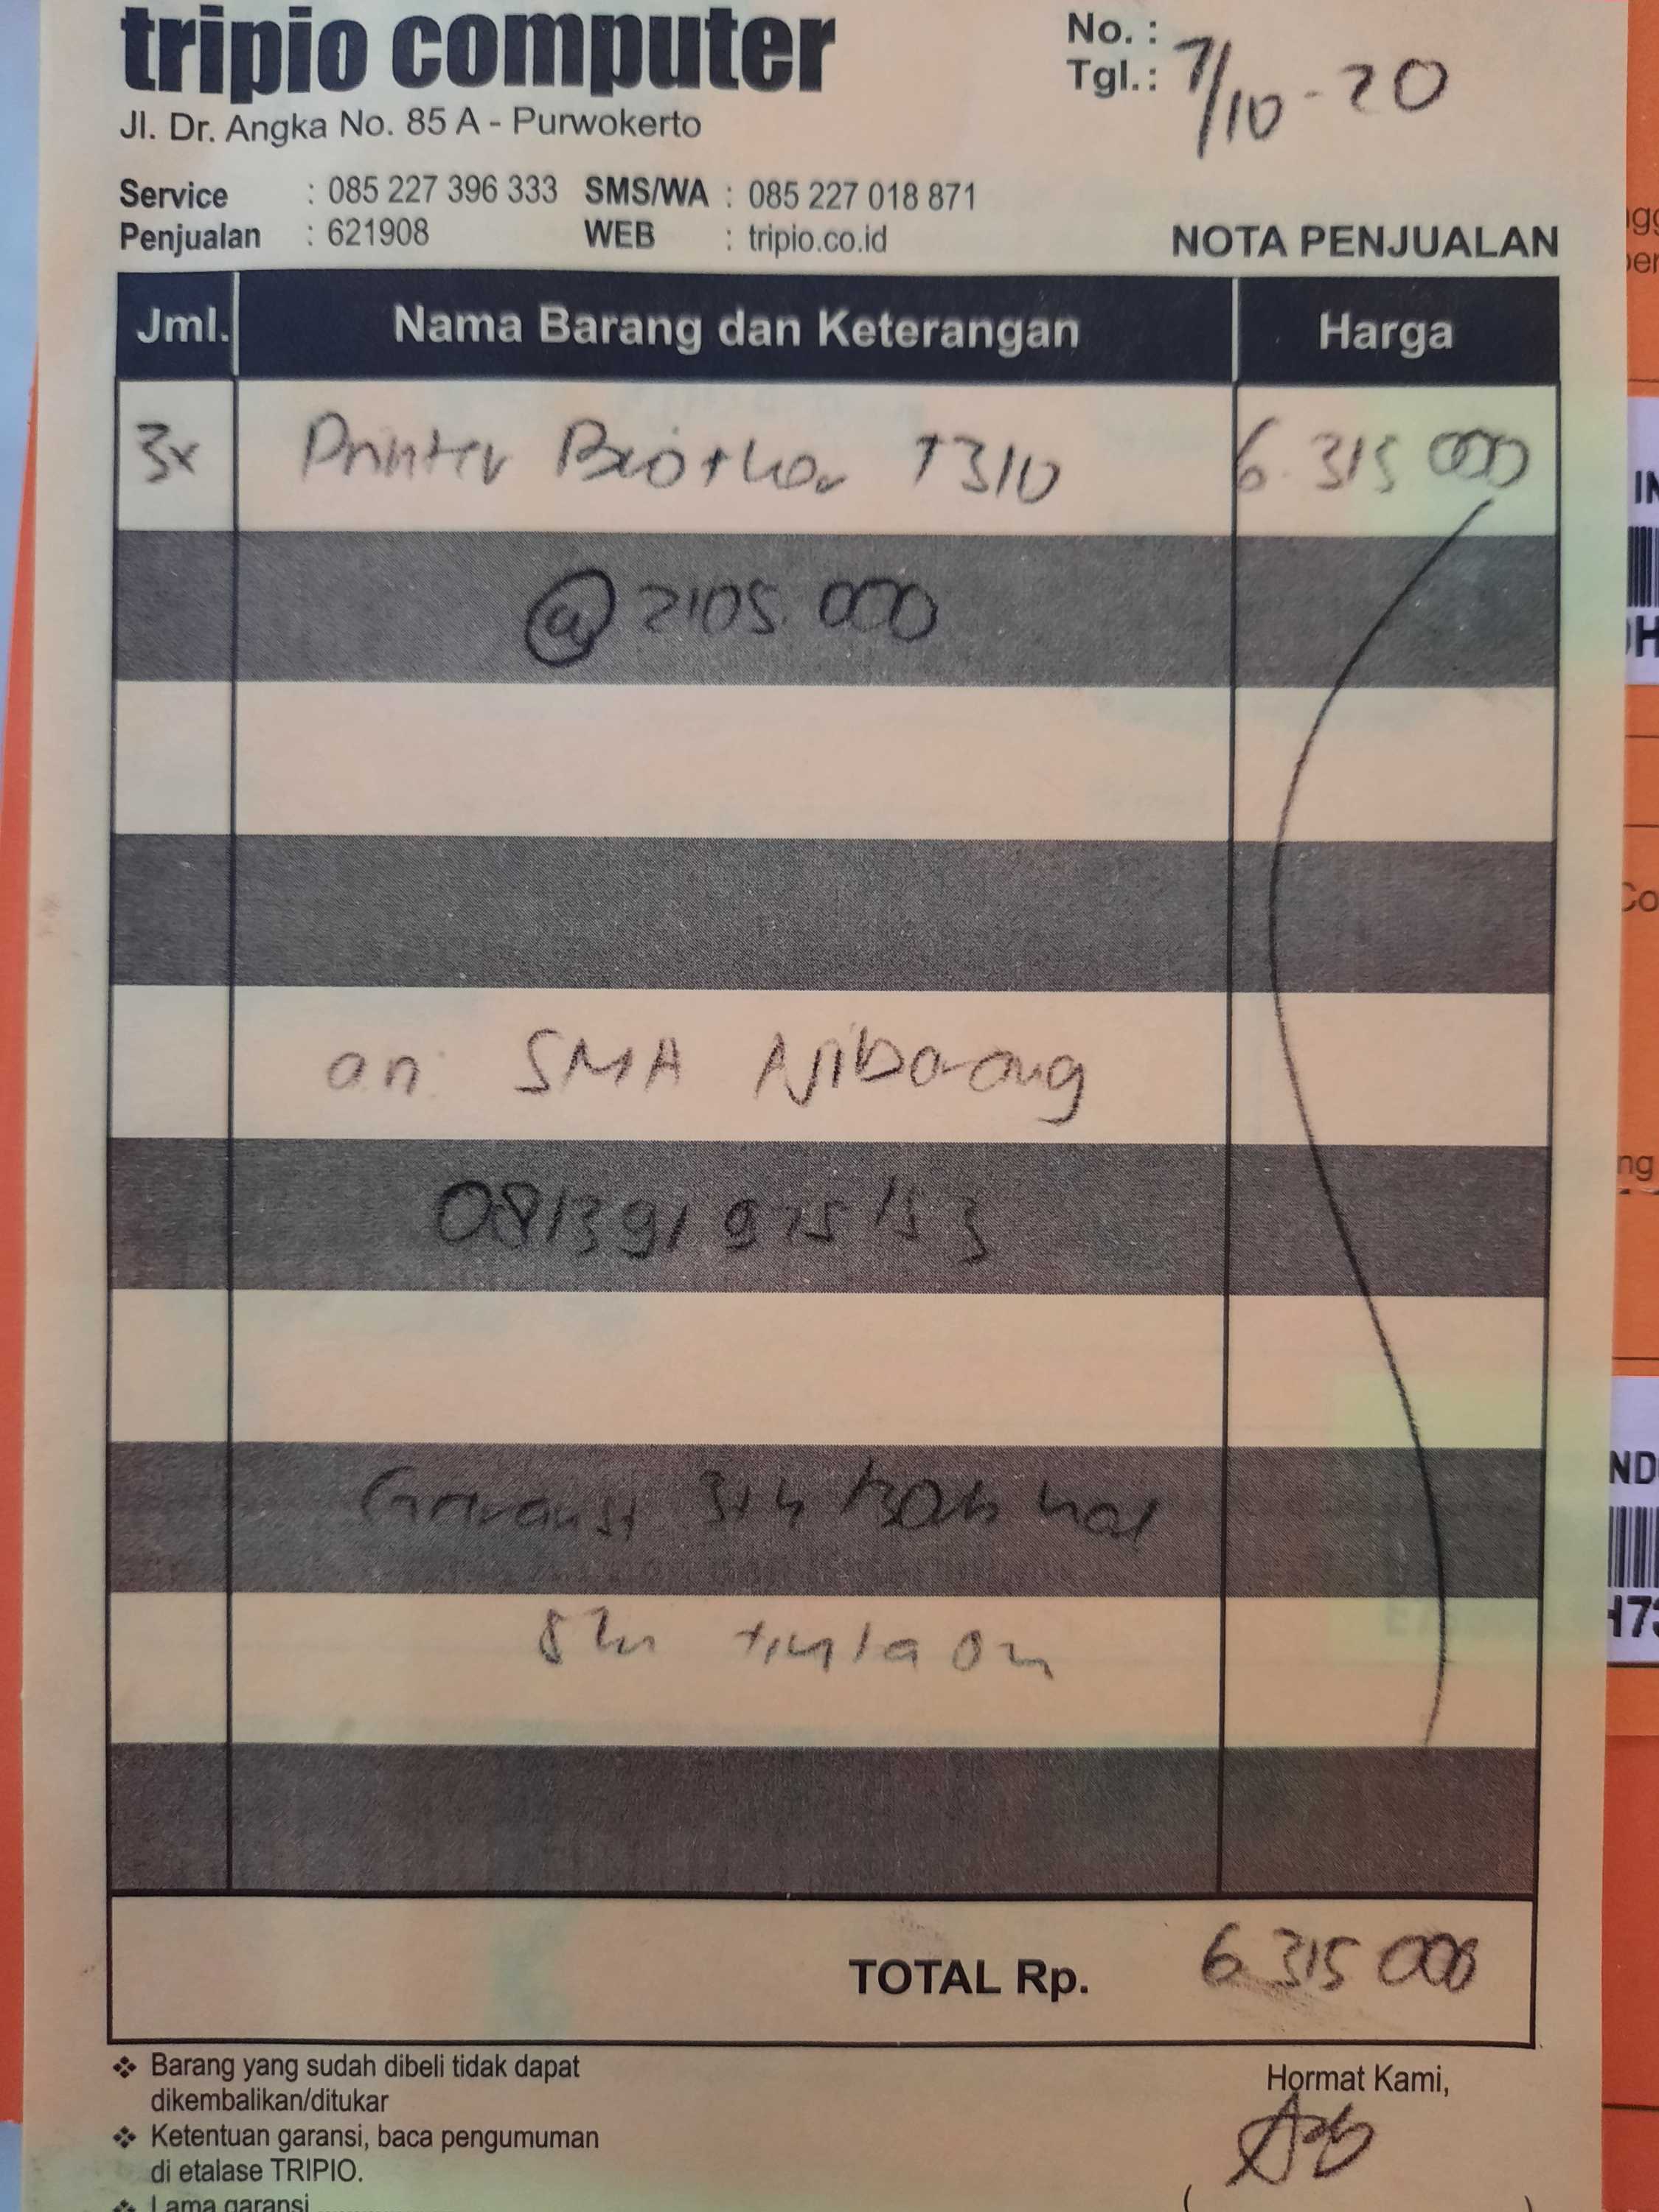 tripio computer
No. :
Tgl. : 7/10 - 20
Jl. Dr. Angka No. 85 A - Purwokerto
Service : 085 227 396 333 SMS/WA : 085 227 018 871
Penjualan : 621908 WEB : tripio.co.id
NOTA PENJUALAN
Jml. Nama Barang dan Keterangan Harga
3x Printer Brother T310 6.315 000
@ 2105.000
an. SMA Ajibarang
Garansi 3th
TOTAL Rp. 6.315 000
❖ Barang yang sudah dibeli tidak dapat
dikembalikan/ditukar
Hormat Kami,
❖ Ketentuan garansi, baca pengumuman
di etalase TRIPIO.
❖ Lama garansi
(
)